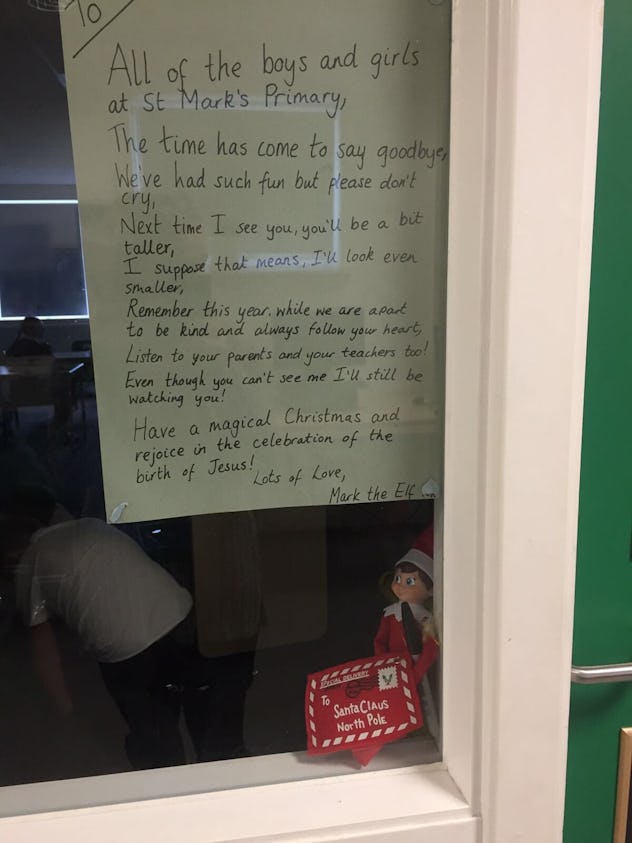 To
All of the boys and girls
at St Mark's Primary,
The time has come to say goodbye,
We've had such fun but please don't
cry,
Next time I see you, you'll be a bit
taller,
I suppose that means, I'll look even
smaller,
Remember this year, while we are apart
to be kind and always follow your heart,
Listen to your parents and your teachers too!
Even though you can't see me I'll still be
watching you!
Have a magical Christmas and
rejoice in the celebration of the
birth of Jesus!
Lots of Love,
Mark the Elf
SPECIAL DELIVERY
To
Santa Claus
North Pole